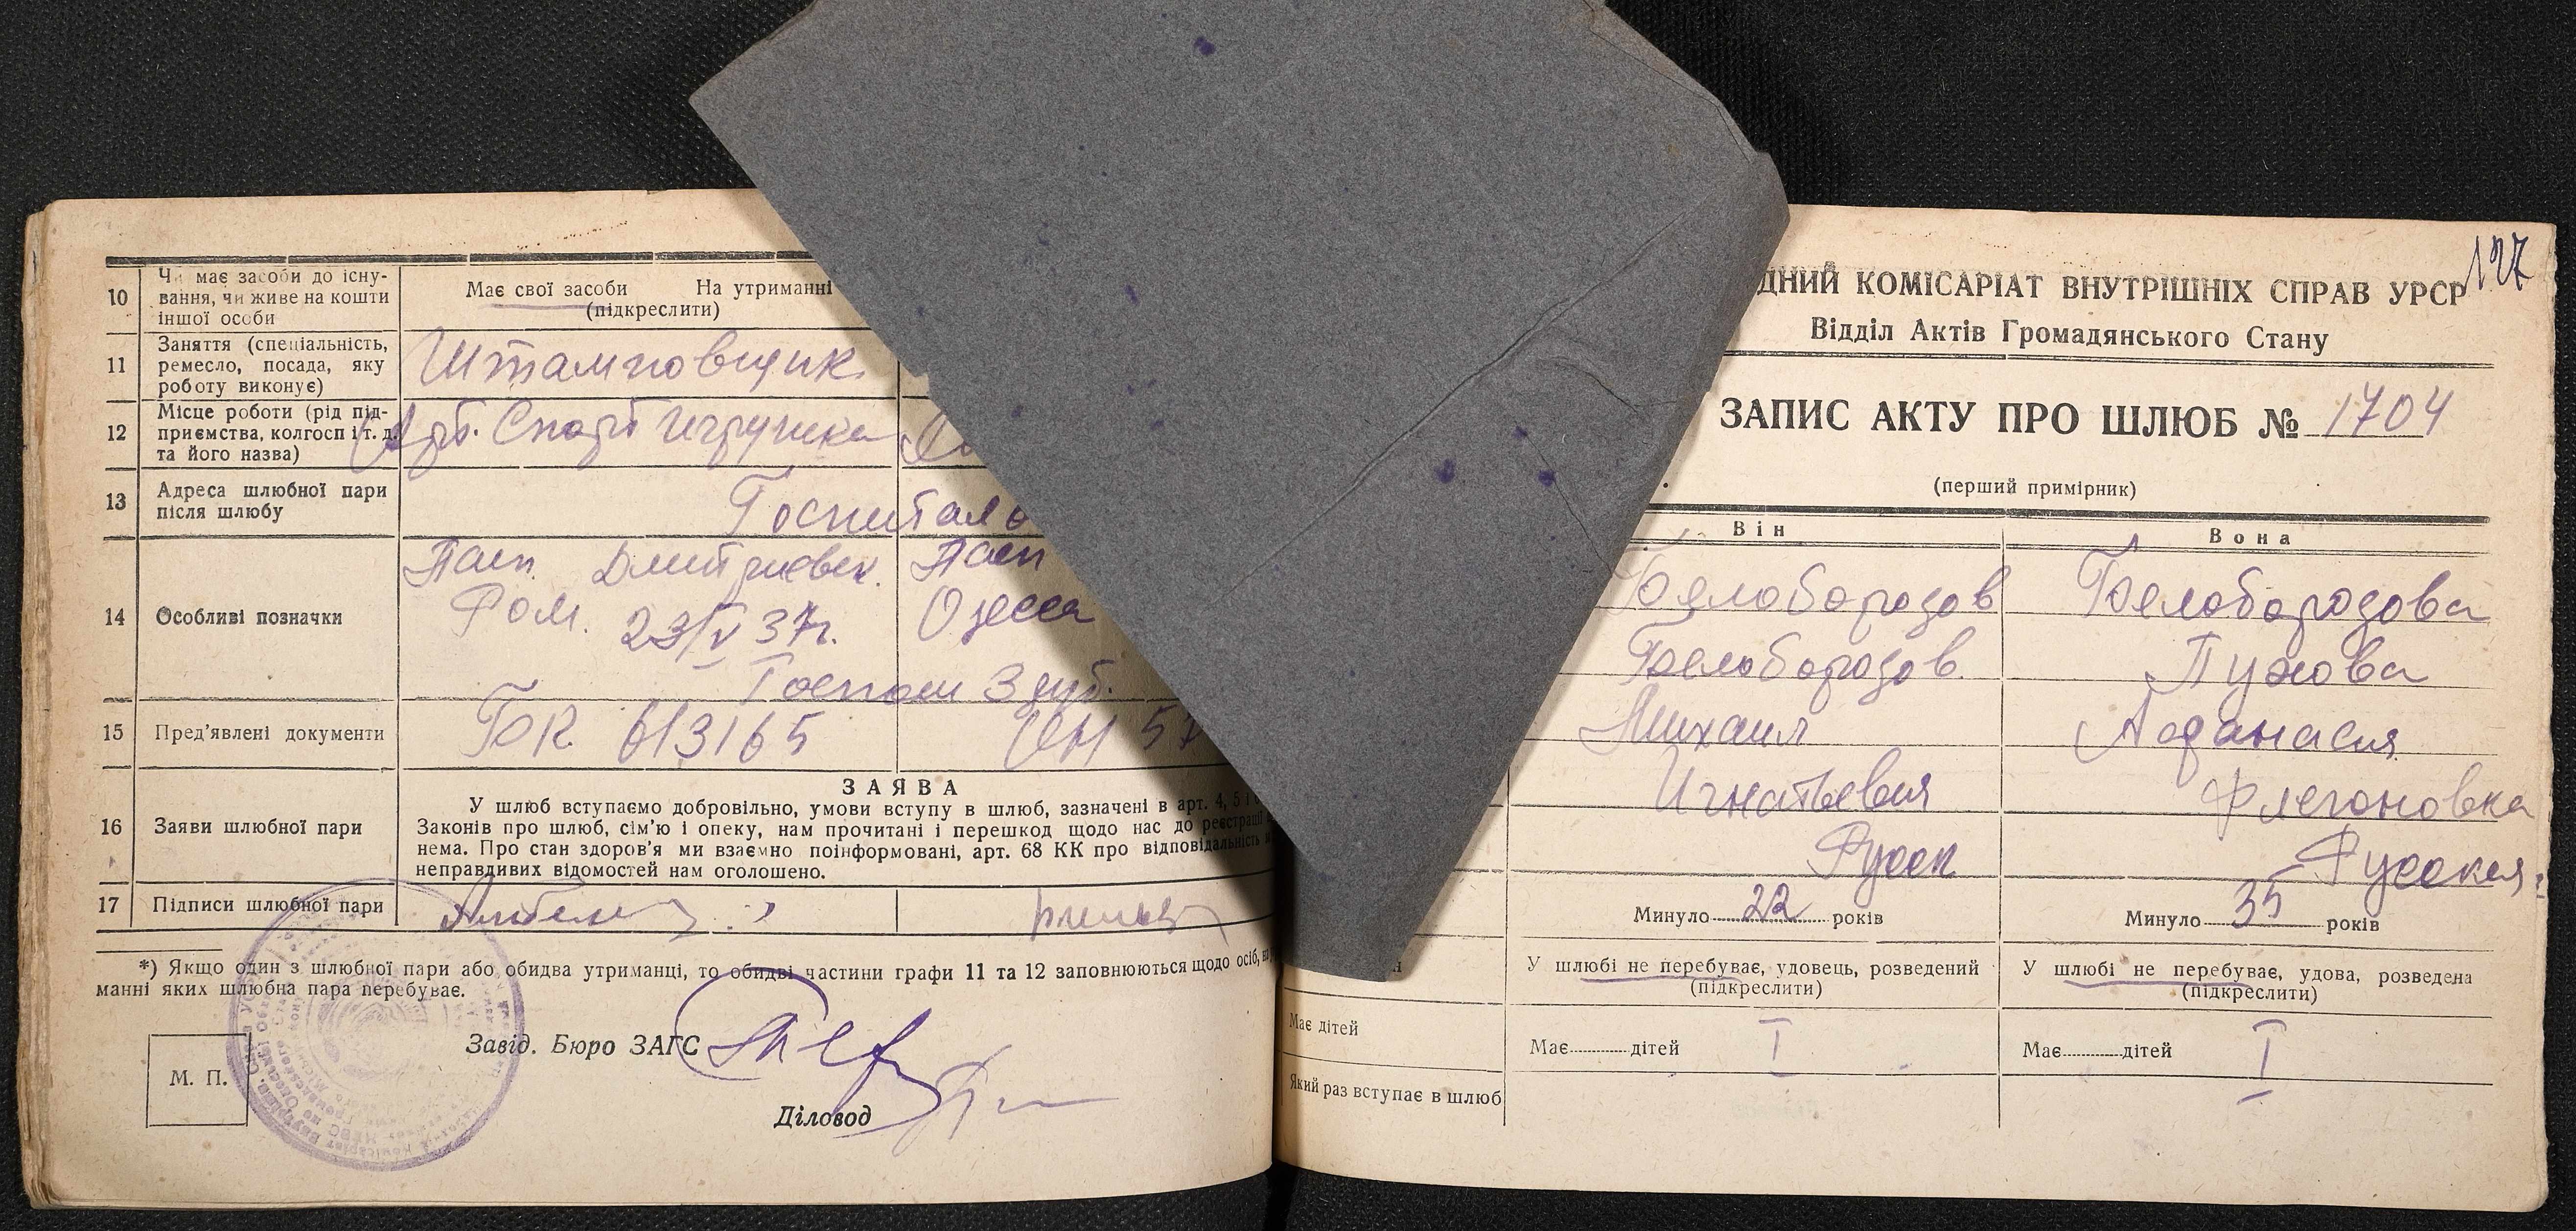 10 Чи має засоби до існу-
вання, чи живе на кошти
іншої особи
Має свої засоби На утриманні
(підкреслити)
11 Заняття (спеціальність,
ремесло, посада, яку
роботу виконує)
Штамповщик
12 Місце роботи (рід під-
приємства, колгосп і т. д.
та його назва)
Арт. Спорт Игрушка
13 Адреса шлюбної пари
після шлюбу
14 Особливі позначки
Дмитриевск.
23/V 37г.
Одесса
Госпош 3 руб.
15 Пред'явлені документи
БК 613165
16 Заяви шлюбної пари
ЗАЯВА
У шлюб вступаємо добровільно, умови вступу в шлюб, зазначені в арт. 4, 5 і
Законів про шлюб, сім'ю і опеку, нам прочитані і перешкод щодо нас до реєстрації
нема. Про стан здоров'я ми взаємно поінформовані, арт. 68 КК про відповідальність
неправдивих відомостей нам оголошено.
17 Підписи шлюбної пари
*) Якщо один з шлюбної пари або обидва утриманці, то обидві частини графи 11 та 12 заповнюються щодо осіб,
манні яких шлюбна пара перебуває.
Завід. Бюро ЗАГС
М. П.
Діловод
127
ДНИЙ КОМІСАРІАТ ВНУТРІШНІХ СПРАВ УРСР
Відділ Актів Громадянського Стану
ЗАПИС АКТУ ПРО ШЛЮБ № 1704
(перший примірник)
Він Вона
Белобородов Белобородова
Белобородов Пухова
Михаил Афанасия
Игнатьевич Флегоновна
Русск Русская
Минуло 22 років Минуло 35 років
У шлюбі не перебуває, удовець, розведений У шлюбі не перебуває, удова, розведена
(підкреслити) (підкреслити)
Має дітей Має дітей I Має дітей I
Який раз вступає в шлюб